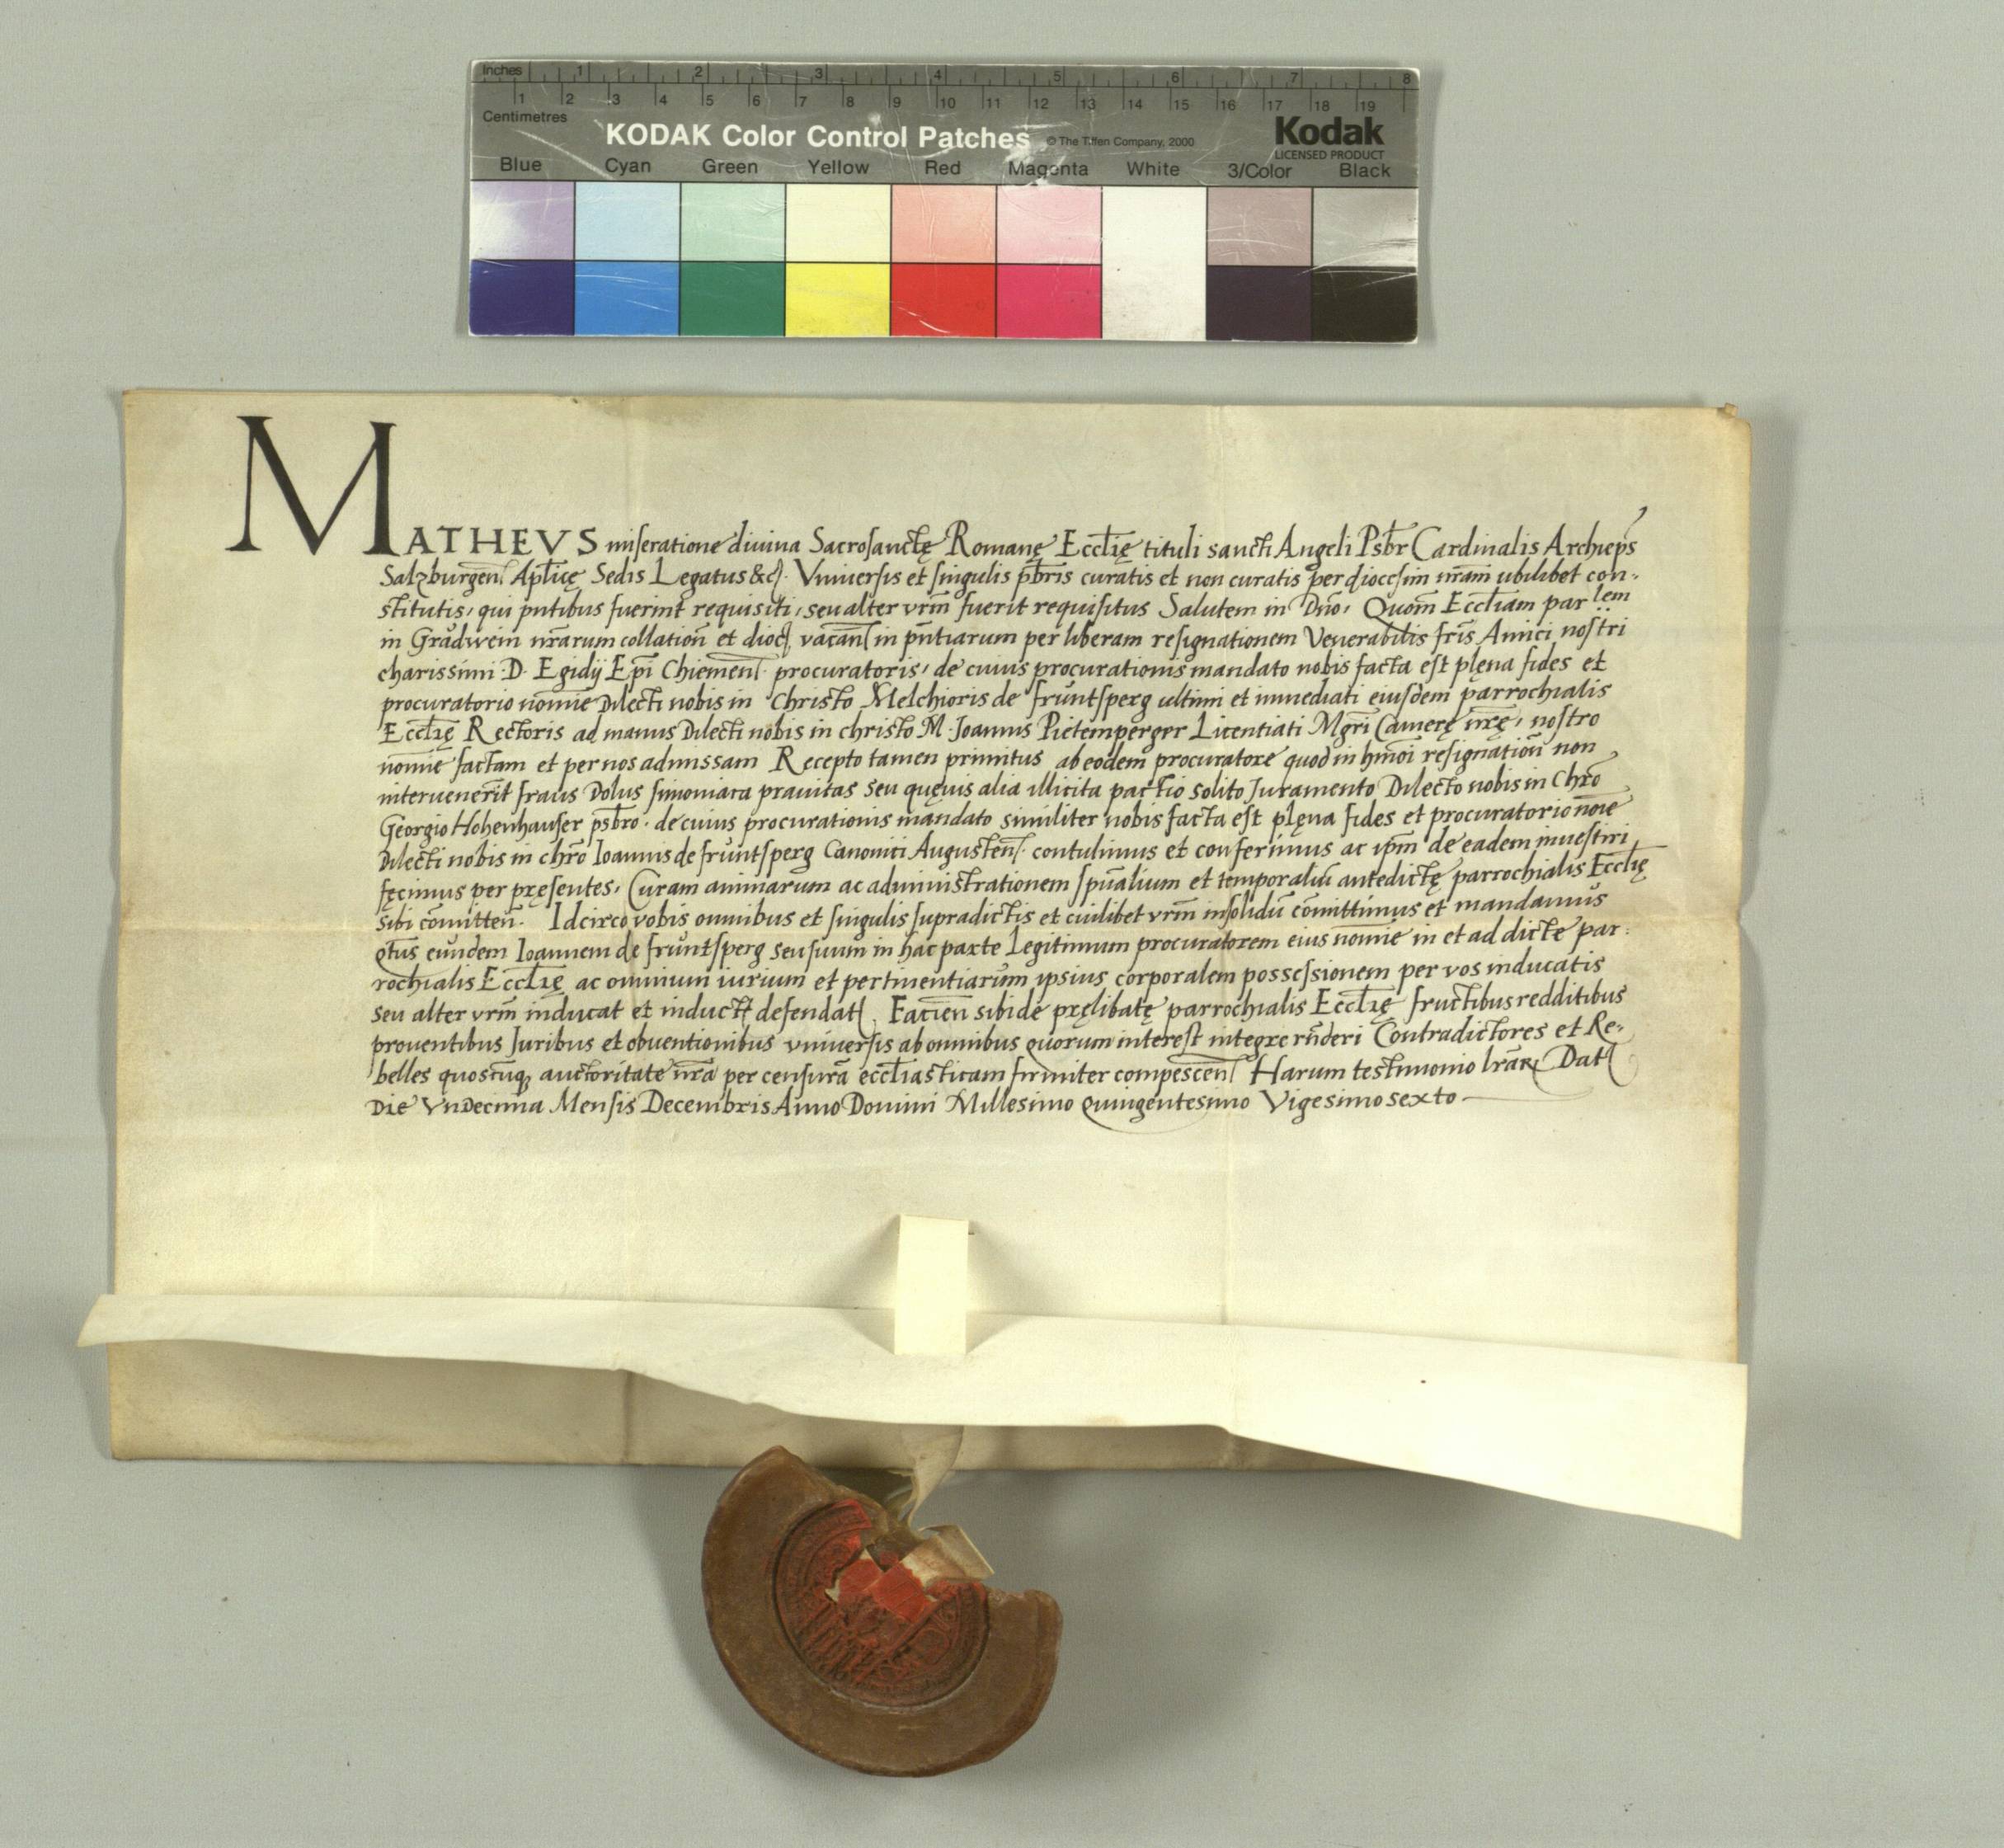 Inches 1 2 3 4 5 6 7 8
1 2 3 4 5 6 7 8 9 10 11 12 13 14 15 16 17 18 19
Centimetres
KODAK Color Control Patches © The Tiffen Company, 2000 Kodak
LICENSED PRODUCT
Blue Cyan Green Yellow Red Magenta White 3/Color Black
MATHEVS miseratione diuina Sacrosanctę Romanę Eccl̄ię tituli sancti Angeli Psb̄r Cardinalis Archiep̄s
Salzburgen̄ Apl̄icę Sedis Legatus &c. Vniuersis et singulis pb̄ris curatis et non curatis per diocesim nr̄am ubilibet con-
stitutis, qui pn̄tibus fuerint requisiti, seu alter vr̄m fuerit requisitus Salutem in Dn̄o, Quom̄ Eccl̄iam par lem
in Grǎdwein nr̄arum collation̄ et dioc, vacan̄ in pn̄tiarum per liberam resignationem Venerabilis fr̄is Amici nostri
charissimi D. Egidij Ep̄i Chiemen̄. procuratoris, de cuius procurationis mandato nobis facta est plęna fides et
procuratorio nomīe Dilecti nobis in Christo Melchioris de frŭntsperg ultimi et immediati eiusdem parrochialis
Eccl̄ię Rectoris ad manus Dilecti nobis in christo M. Joannis Pietemperger Licentiati Mgr̄i Camerę nr̄ę, nostro
nomīe factam et per nos admissam Recepto tamen primitus ab eodem procuratore quod in hm̄oi resignation̄ non
interuenerit fraus Dolus simoniaca prauitas seu quęuis alia illicita pactio solito Juramento Dilecto nobis in Chr̄o
Georgio Hohenhauser psb̄ro. de cuius procurationis mandato similiter nobis facta est plęna fides et procuratorio noīe
Dilecti nobis in chr̄o Ioannis de frŭntsperg Canonici Augusten̄. contulimus et conferimus ac ip̄m de eadem inuestiri
fęcimus per pręsentes, Curam animarum ac administrationem sp̄ualium et temporaliū antedictę parrochialis Eccl̄ię
sibi com̄itten̄. Idcirco vobis omnibus et singulis supradictis et cuilibet vr̄m insolidū com̄ittimus et mandamus
qt̄us eundem Ioannem de frŭntsperg seu suum in hac parte Legitimum procuratorem eius nomīe in et ad dictę par-
rochialis Eccl̄ię ac omnium iurium et pertinentiarum ipsius corporalem possessionem per vos inducatis
seu alter vr̄m inducat et induct defendat. Facien̄ sibi de pręlibatę parrochialis Eccl̄ię fructibus redditibus
prouentibus Juribus et obuentionibus vniuersis ab omnibus quorum interest integre rn̄deri Contradictores et Re-
belles quoscūq; auctoritate nr̄a per censurā eccl̄iasticam firmiter compescen̄ Harum testimonio lr̄aꝝ Dat
Die Vndecima Mensis Decembris Anno Domini Millesimo Quingentesimo Vigesimo sexto